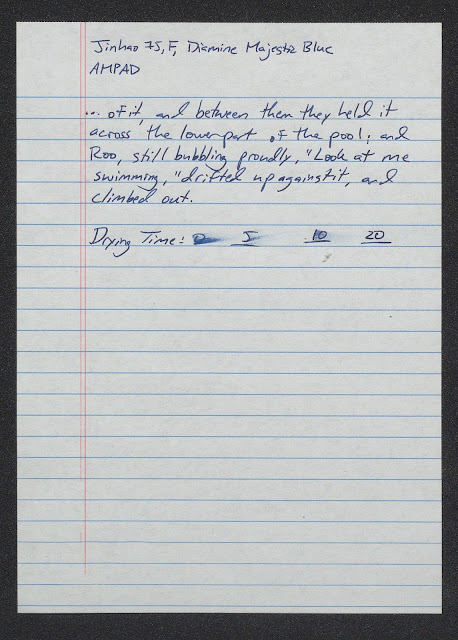 Jinhao 75, F, Diamine Majestic Blue
AMPAD
... of it, and between them they held it
across the lower part of the pool; and
Roo, still bubbling proudly, "Look at me
swimming," drifted up against it, and
climbed out.
Drying Time: 0 5 10 20